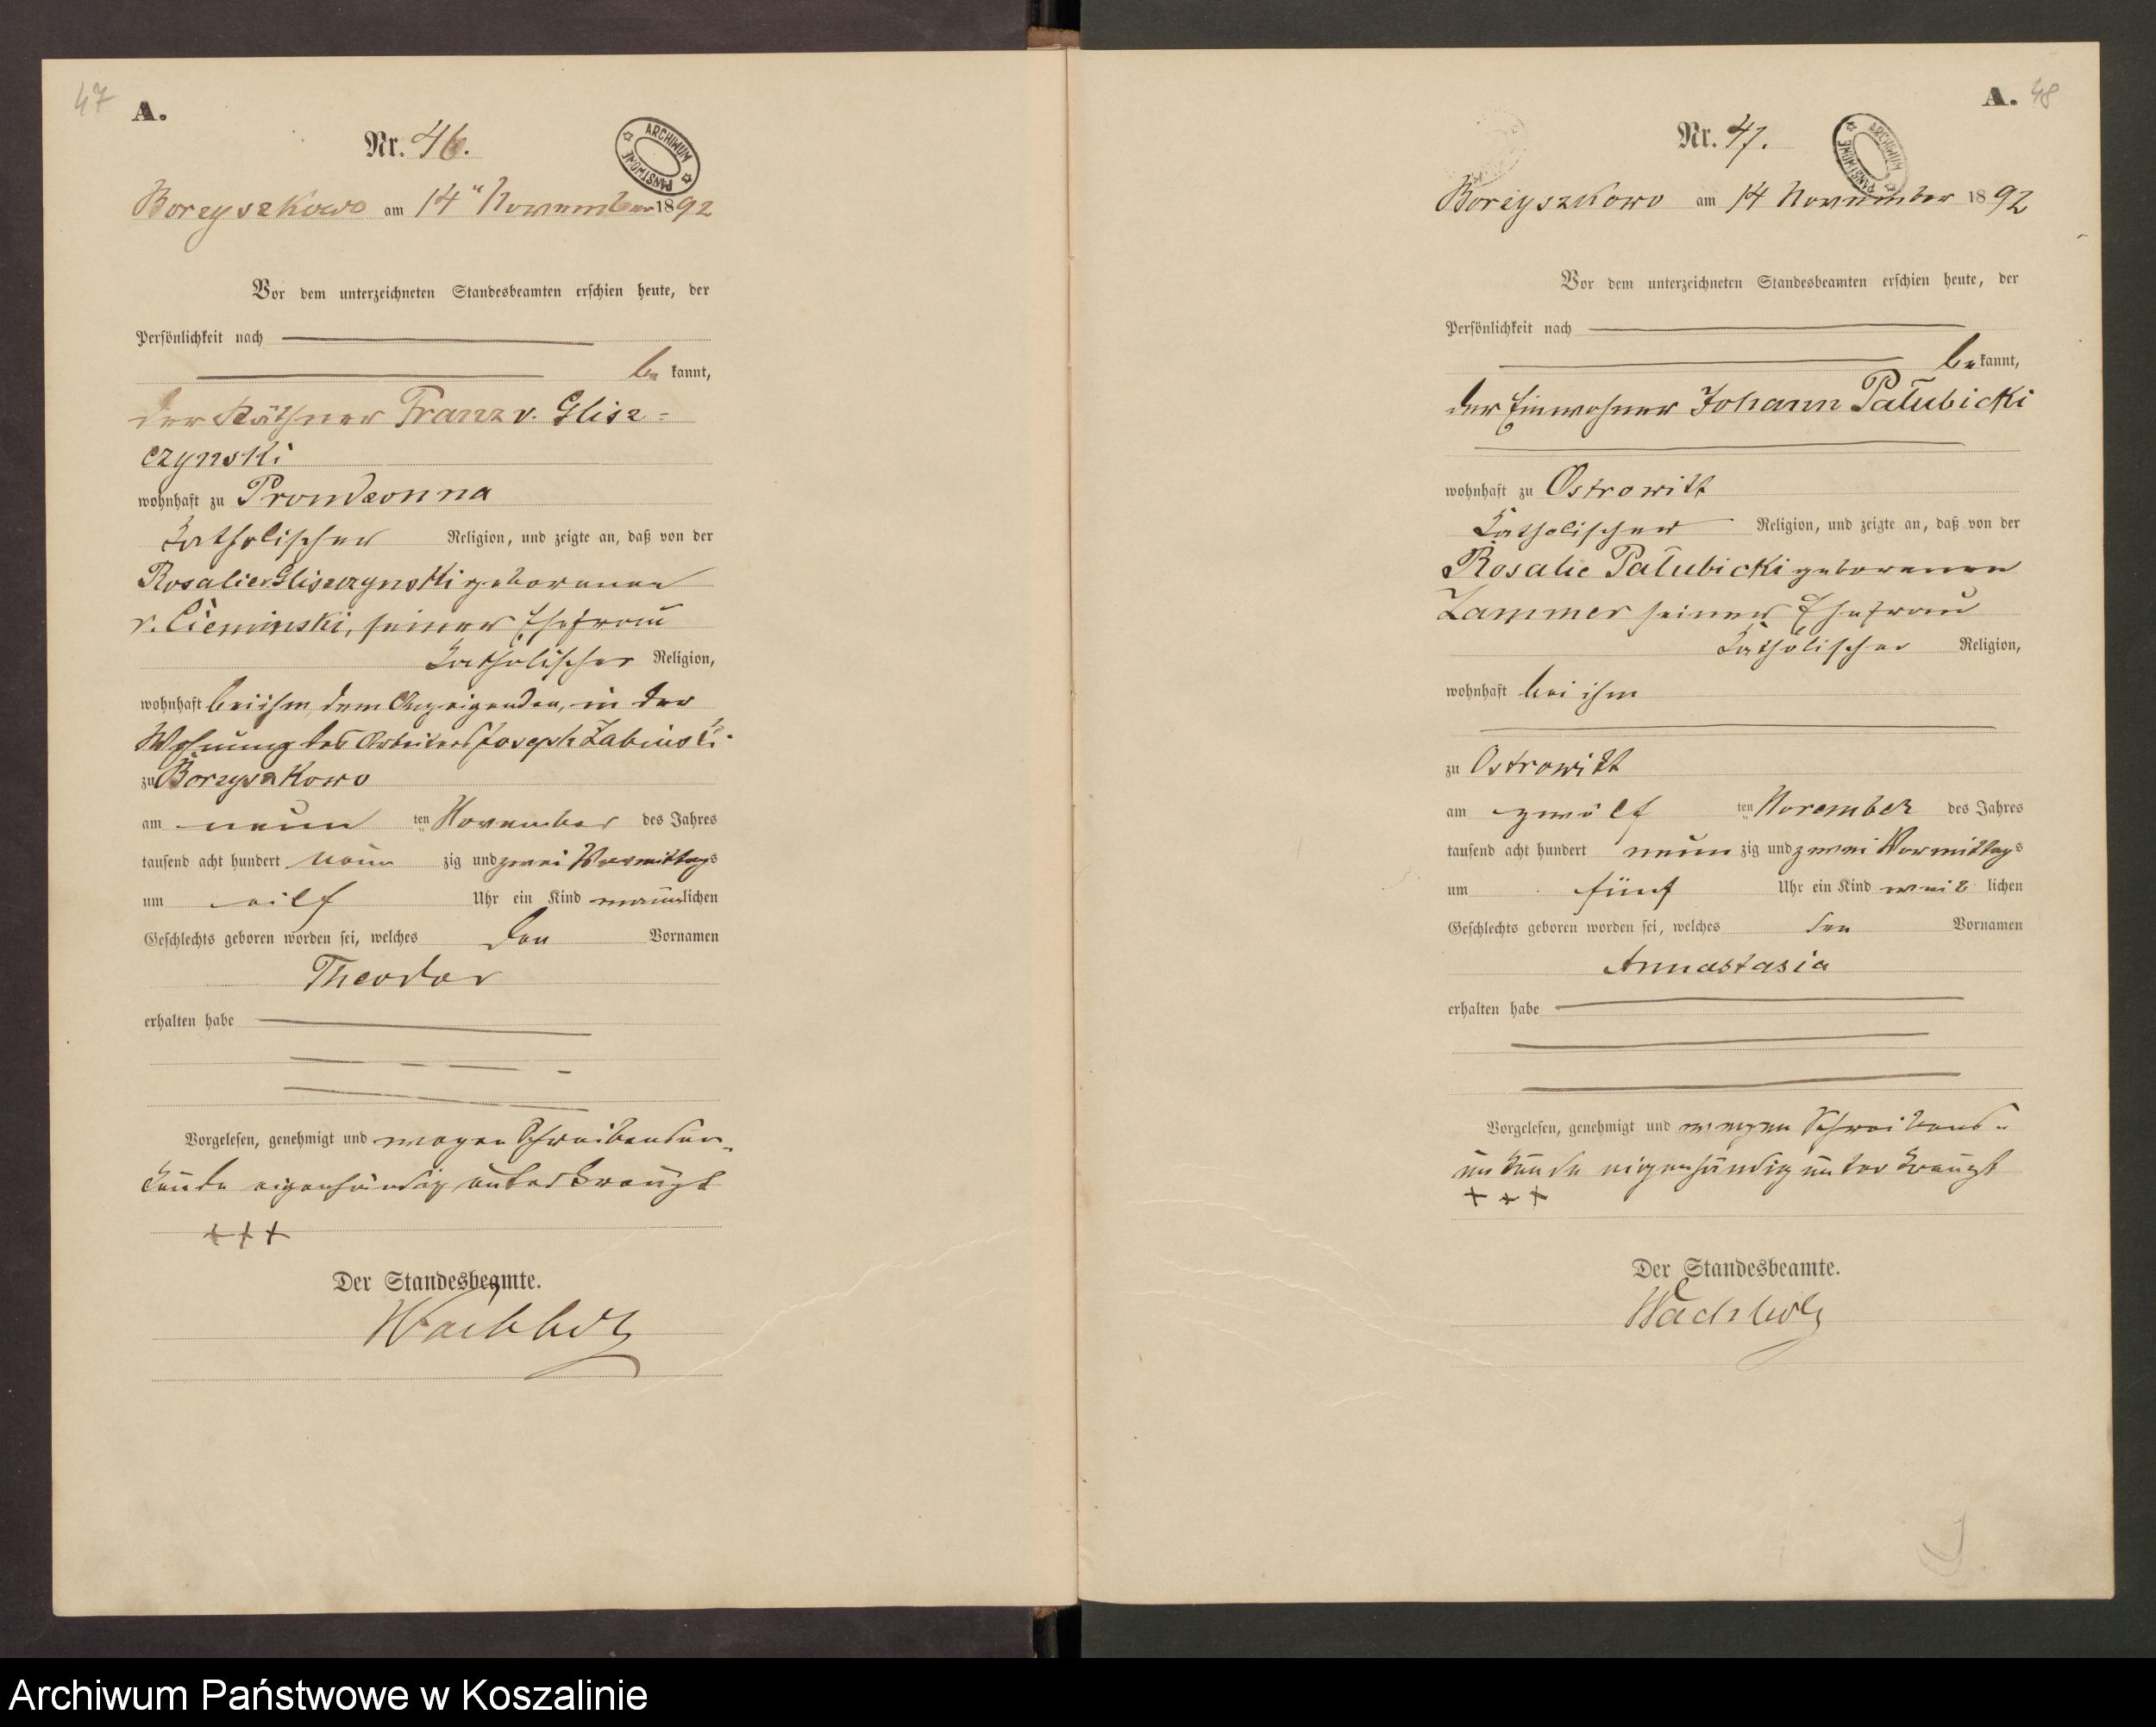 47
A.
Nr. 46.
ARCHIWUM PAŃSTWOWE
Borzyszkowo am 14ⁿ November 1892
Vor dem unterzeichneten Standesbeamten erschien heute, der
Persönlichkeit nach
be kannt,
der Käthner Franz v. Glisz=
czynski
wohnhaft zu Prondzonna
katholischer Religion, und zeigte an, daß von der
Rosalie v Gliszczynski geborenen
v. Cieminski, seiner Ehefrau
katholischer Religion,
wohnhaft bei ihm, dem Anzeigenden, in der
Wohnung des Arbeiters Joseph Zabinski
zu Borzyszkowo
am neun ten November des Jahres
tausend acht hundert neun zig und zwei Vormittags
um eilf Uhr ein Kind männlichen
Geschlechts geboren worden sei, welches den Vornamen
Theodor
erhalten habe
Vorgelesen, genehmigt und wegen Schreibensun-
kunde eigenhändig unterkreuzt
+++
Der Standesbeamte.
Wachholz
A. 48
Nr. 47.
ARCHIWUM PAŃSTWOWE
Borzyszkowo am 14 November 1892
Vor dem unterzeichneten Standesbeamten erschien heute, der
Persönlichkeit nach
be kannt,
der Einwohner Johann Pałubicki
wohnhaft zu Ostrowitt
katholischer Religion, und zeigte an, daß von der
Rosalie Pałubicki geborenen
Zammer seiner Ehefrau
katholischer Religion,
wohnhaft bei ihm
zu Ostrowitt
am zwölf ten November des Jahres
tausend acht hundert neun zig und zwei Vormittags
um fünf Uhr ein Kind weib lichen
Geschlechts geboren worden sei, welches den Vornamen
Annastasia
erhalten habe
Vorgelesen, genehmigt und wegen Schreibens-
unkunde eigenhändig unterkreuzt
+ + +
Der Standesbeamte.
Wachholz
Archiwum Państwowe w Koszalinie